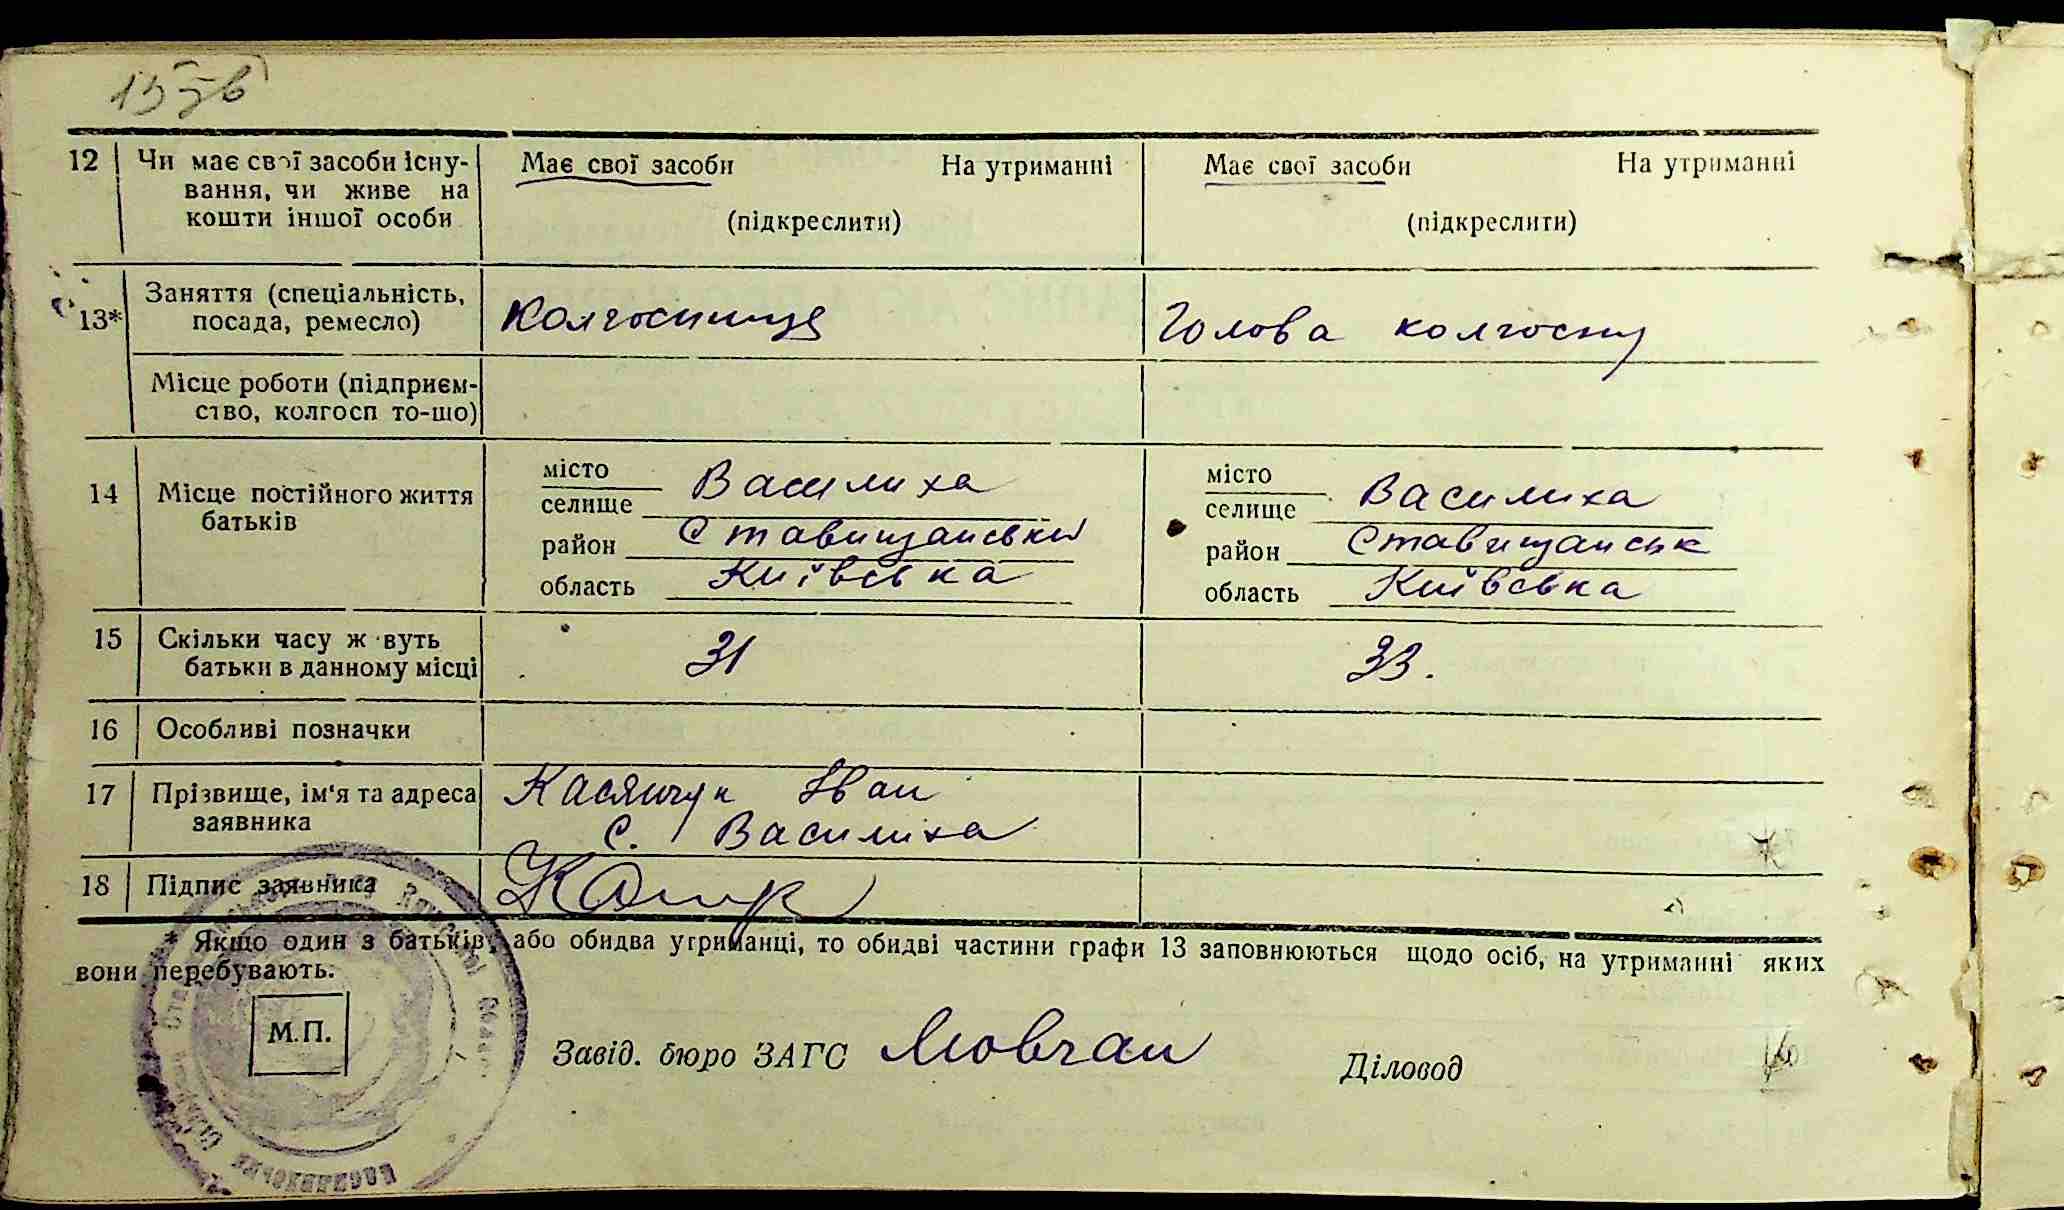 12 Чи має свої засоби існу- Має свої засоби На утриманні Має свої засоби На утриманні
вання, чи живе на
кошти іншої особи (підкреслити) (підкреслити)
13* Заняття (спеціальність, посада, ремесло) Колгоспниця Голова колгоспу
Місце роботи (підприєм-
ство, колгосп то-що)
14 Місце постійного життя батьків
місто місто
селище Василиха селище Василиха
район Ставищанськи район Ставищанськ
область Київська область Київська
15 Скільки часу ж вуть 31 33.
батьки в данному місці
16 Особливі позначки
17 Прізвище, ім'я та адреса Касянчук Іван
заявника с. Василиха
18 Підпис заявника
* Якщо один з батьків, або обидва утриманці, то обидві частини графи 13 заповнюються щодо осіб, на утриманні яких
вони перебувають.
М.П.
Завід. бюро ЗАГС Мовчан Діловод